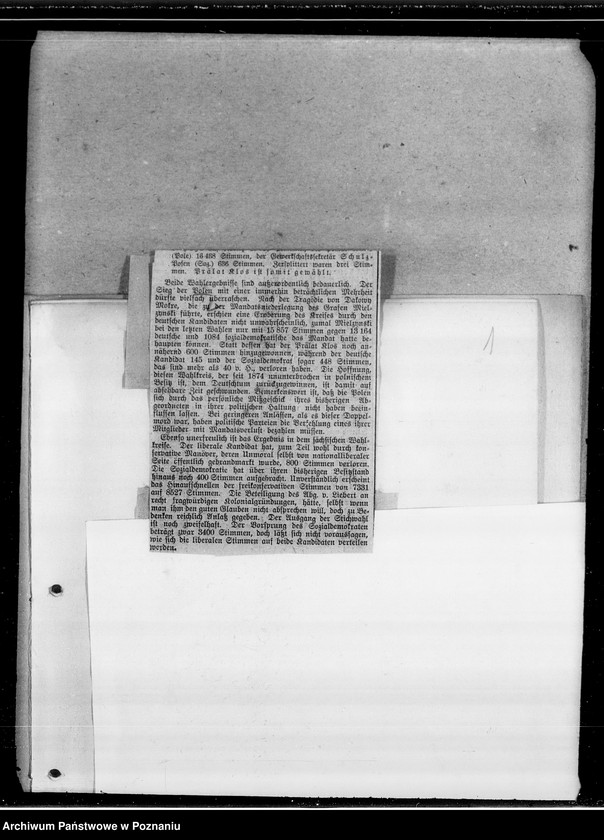 (Pole) 16 458 Stimmen, der Gewerkschaftssekretär Schulz-
Posen (Soz.) 636 Stimmen. Zersplittert waren drei Stim-
men. Prälat Klos ist somit gewählt.
Beide Wahlergebnisse sind außerordentlich bedauerlich. Der
Sieg der Polen mit einer immerhin beträchtlichen Mehrheit
dürfte vielfach überraschen. Nach der Tragödie von Dakowy
Mokre, die zu der Mandatsniederlegung des Grafen Miel-
zynski führte, erschien eine Eroberung des Kreises durch den
deutschen Kandidaten nicht unwahrscheinlich, zumal Mielzynski
bei den letzten Wahlen nur mit 15 857 Stimmen gegen 13 164
deutsche und 1084 sozialdemokratische das Mandat hatte be-
haupten können. Statt dessen hat der Prälat Klos noch an-
nähernd 600 Stimmen hinzugewonnen, während der deutsche
Kandidat 145 und der Sozialdemokrat sogar 448 Stimmen,
das sind mehr als 40 v. H., verloren haben. Die Hoffnung,
diesen Wahlkreis, der seit 1874 ununterbrochen in polnischem
Besitz ist, dem Deutschtum zurückzugewinnen, ist damit auf
absehbare Zeit geschwunden. Bemerkenswert ist, daß die Polen
sich durch das persönliche Mißgeschick ihres bisherigen Ab-
geordneten in ihrer politischen Haltung nicht haben beein-
flussen lassen. Bei geringeren Anlässen, als es dieser Doppel-
mord war, haben politische Parteien die Verfehlung eines ihrer
Mitglieder mit Mandatsverlust bezahlen müssen.
Ebenso unerfreulich ist das Ergebnis in dem sächsischen Wahl-
kreise. Der liberale Kandidat hat, zum Teil wohl durch kon-
servative Manöver, deren Unmoral selbst von nationalliberaler
Seite öffentlich gebrandmarkt wurde, 800 Stimmen verloren.
Die Sozialdemokratie hat über ihren bisherigen Besitzstand
hinaus noch 400 Stimmen aufgebracht. Unverständlich erscheint
das Hinaufschnellen der freikonservativen Stimmen von 7331
auf 8527 Stimmen. Die Beteiligung des Abg. v. Liebert an
recht fragwürdigen Kolonialgründungen, hätte, selbst wenn
man ihm den guten Glauben nicht absprechen will, doch zu Be-
denken reichlich Anlaß gegeben. Der Ausgang der Stichwahl
ist noch zweifelhaft. Der Vorsprung des Sozialdemokraten
beträgt zwar 3400 Stimmen, doch läßt sich nicht voraussagen,
wie sich die liberalen Stimmen auf beide Kandidaten verteilen
werden.
1
Archiwum Państwowe w Poznaniu